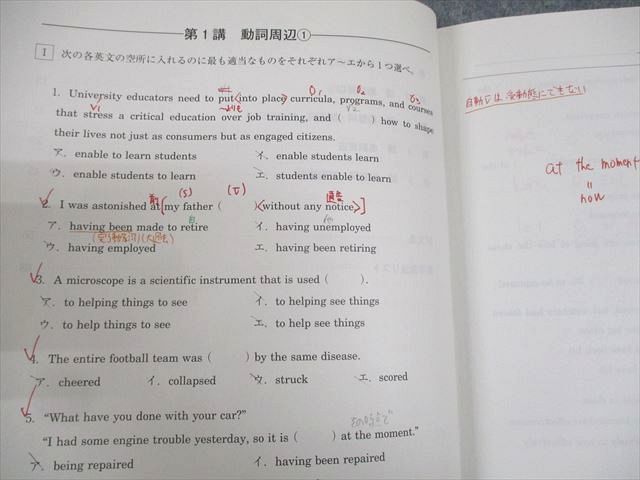 第1講 動詞周辺①
Ⅰ 次の各英文の空所に入れるのに最も適当なものをそれぞれア～エから1つ選べ。
1. University educators need to put into place curricula, programs, and courses
that stress a critical education over job training, and ( ) how to shape
their lives not just as consumers but as engaged citizens.
ア. enable to learn students イ. enable students learn
ウ. enable students to learn エ. students enable to learn
2. I was astonished at my father ( ) without any notice.
ア. having been made to retire イ. having unemployed
ウ. having employed エ. having been retiring
3. A microscope is a scientific instrument that is used ( ).
ア. to helping things to see イ. to helping see things
ウ. to help things to see エ. to help see things
4. The entire football team was ( ) by the same disease.
ア. cheered イ. collapsed ウ. struck エ. scored
5. “What have you done with your car?”
“I had some engine trouble yesterday, so it is ( ) at the moment.”
ア. being repaired イ. having been repaired
O₁ O₂ O₃
V₁ V₂
(S) (V)
自動詞は受動態にできない
at the moment
=
now